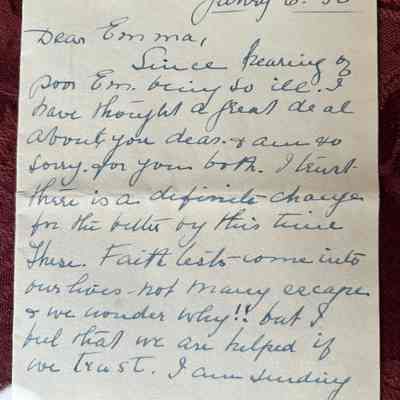 Dear Emma,
Since hearing of
poor Em. being so ill. I
have thought a great deal
about you dear. & am so
sorry. for you both. I trust
there is a definite change
for the better by this time
These. Faith tests come into
our lives not many escape
& we wonder why!! but I
but that we are helped if
we trust. I am sending